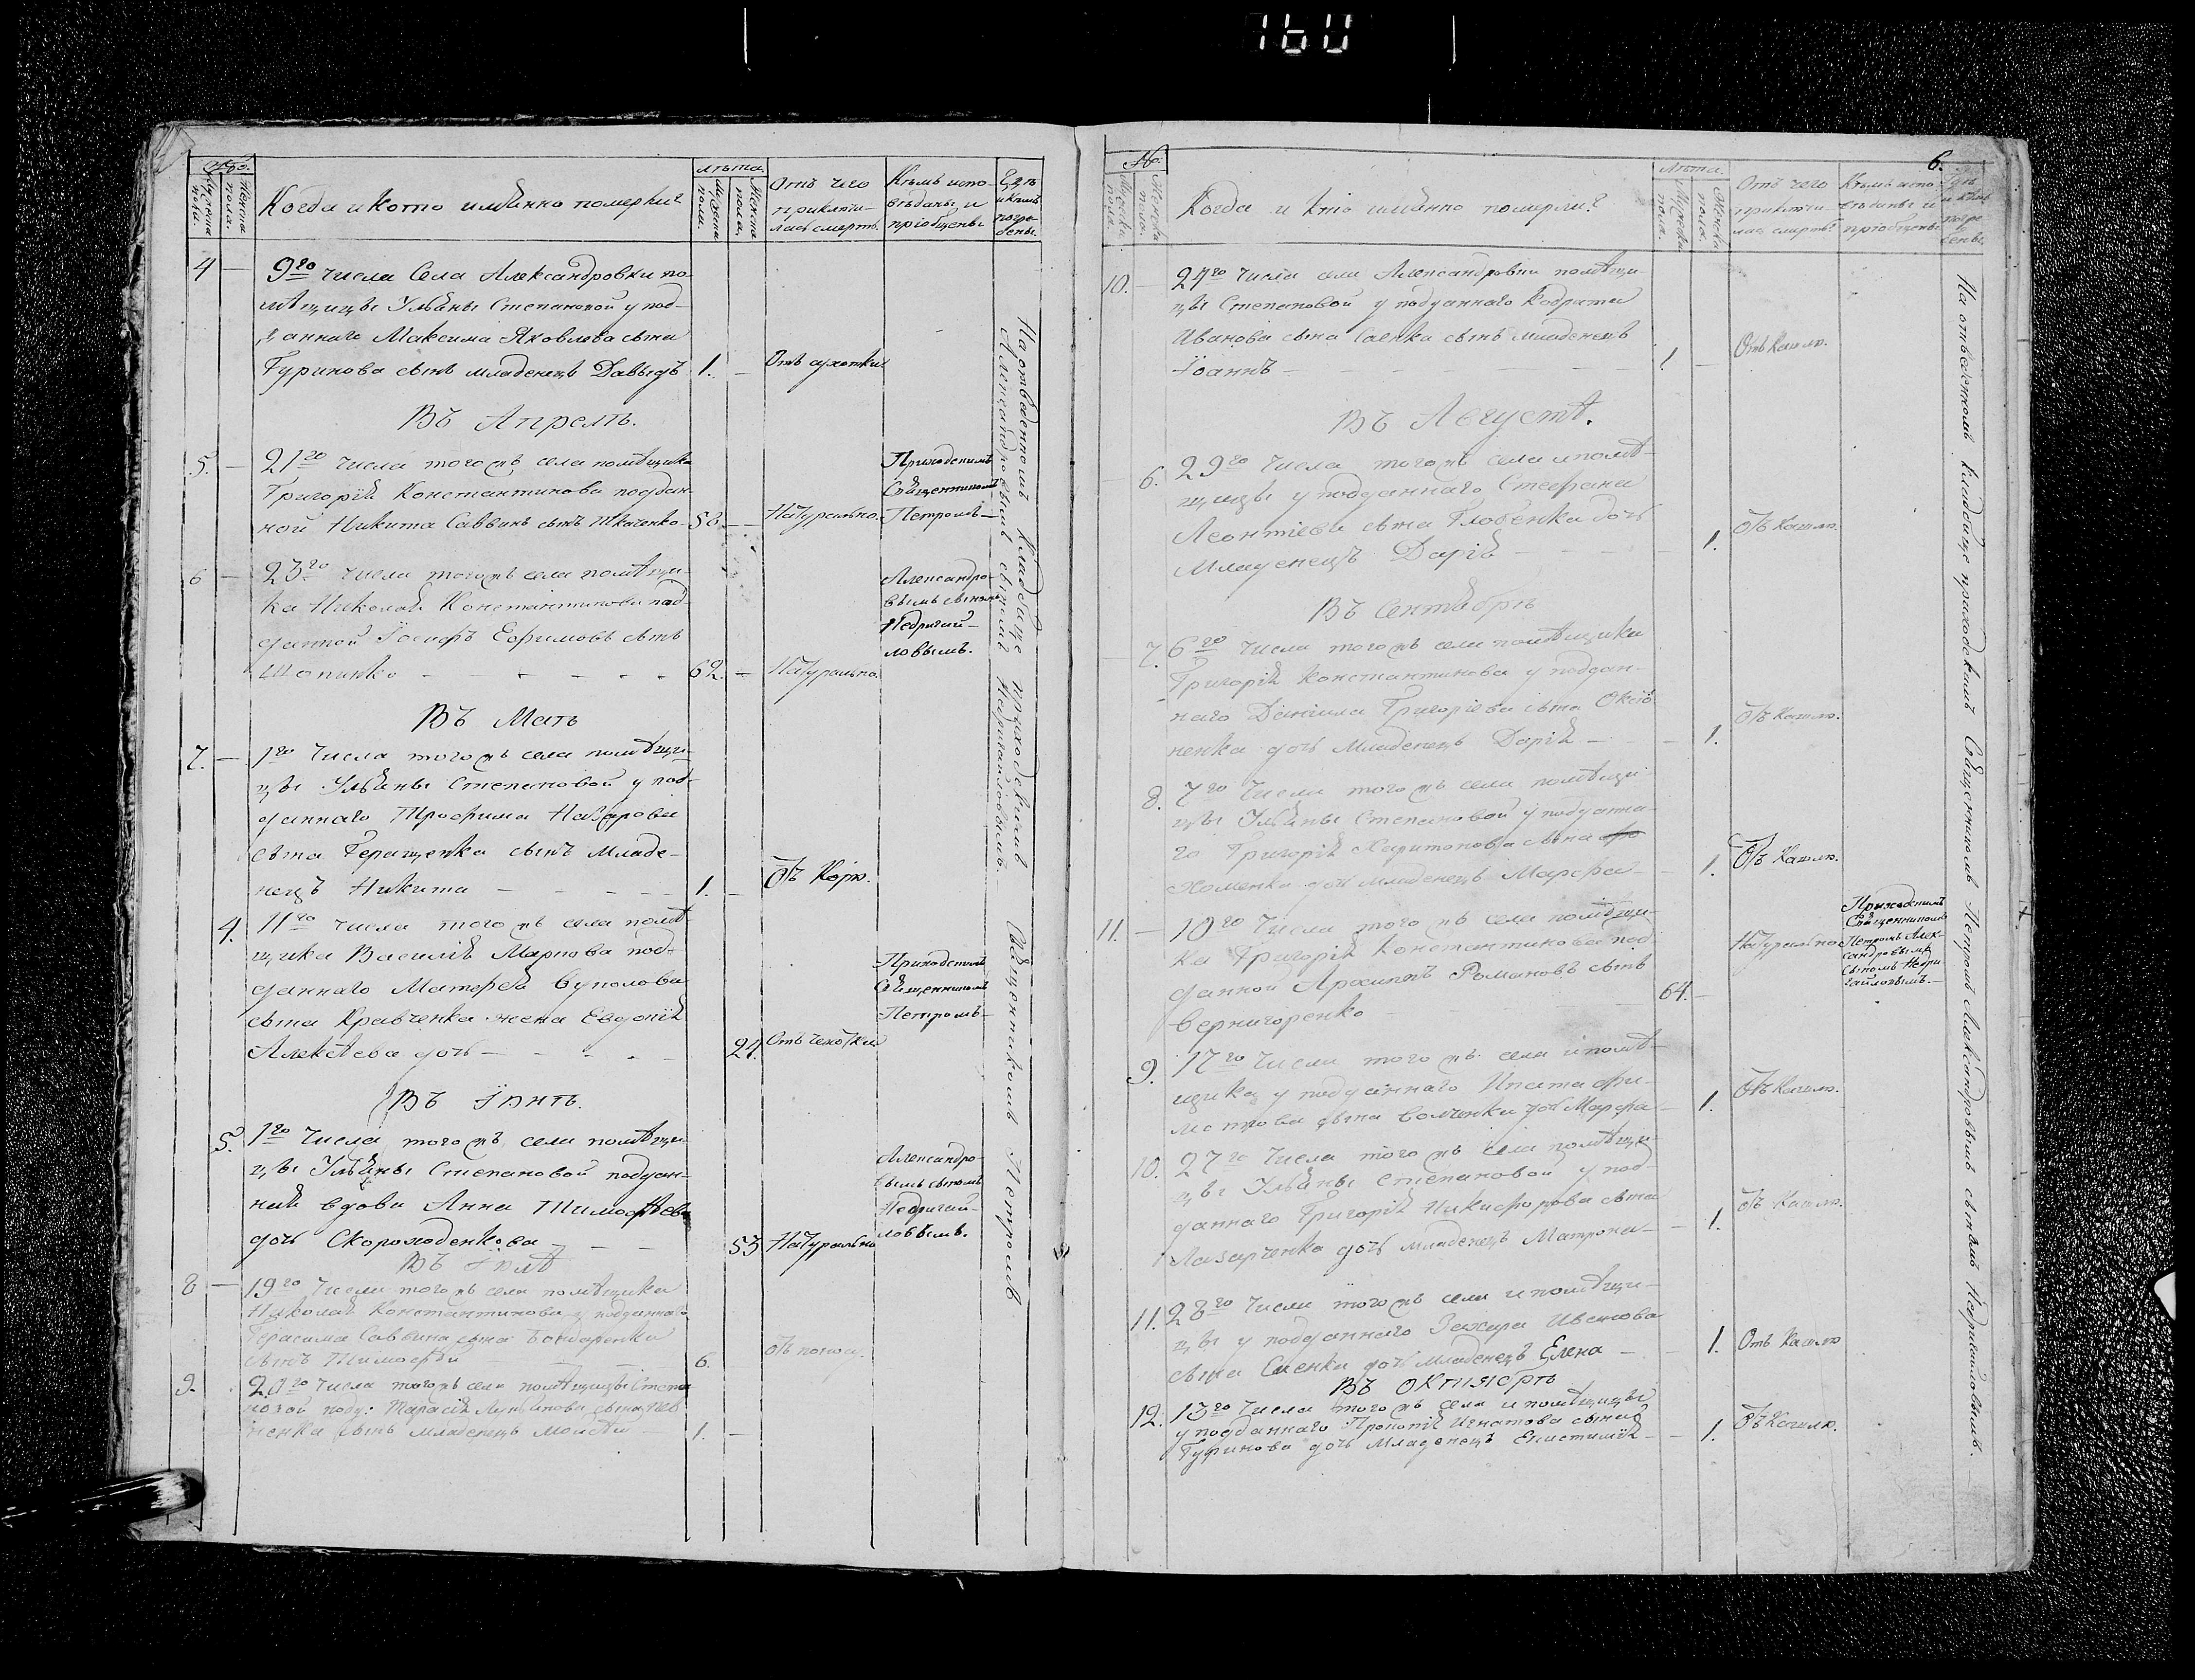 160
№.
Мужеска пола.
Женска пола.
Когда и Кото имѧнно померли?
лѣта.
Мужеска пола.
Женска пола.
Отъ чего приключи-
лась смерть.
Кѣмъ испо-
вѣданы, и
пріобщены
Гдѣ
и Кѣмъ
погре-
бены.
4 —
9го числа Села Александровки по-
мѣщицы Ульѧны Степановой у под-
даннаго Максима Яковлева сына
Гуринова сынъ младенецъ Давыдъ 1. — Отъ сухотки
Въ Апрелѣ.
5. — 21го числа тогожъ села помѣщика
Григоріѧ Константинова поддан-
ной Никита Саввинъ сынъ Ткаченко — 58 — Натурально.
Приходскимъ
Свѧщенникомъ
Петромъ —
6 — 23го числа тогожъ села помѣщи-
ка Николаѧ Константинова под-
данной Іосифъ Ефимовъ сынъ
62. — Натурально.
Александро-
вымъ сыномъ
Недригай-
ловымъ.
Въ Маіѣ
7. — 1го числа тогожъ села помѣщи-
цы Ульѧны Степановой у под-
даннаго Трофима Назарова
сына Геращенка сынъ Младе-
нецъ Никита — 1. — Отъ Корю.
4. 11го числа тогожъ села помѣ-
щика Василіѧ Маркова под-
даннаго Матфеѧ
сына Кравченка жена Евдокіѧ
Алексѣева дочь — 24.
Приходскимъ
Свѧщенникомъ
Петромъ —
Въ Іюнѣ.
5. 1го Числа тогожъ села помѣщи-
цы Ульѧны Степановой поддан-
наѧ вдова Анна Тимофѣева
дочь Скороходенкова — 53 Натурально
Александро-
вымъ сыномъ
Недригай-
ловымъ.
Въ Іюлѣ
8 — 19го Числа тогожъ села помѣщика
Николаѧ Константинова у подданнаго
Герасима Саввина сына Бондаренка
сынъ Тимофей — 6. Отъ поносу.
9. 20го числа тогожъ села помѣщицы Степа-
новой подд: Тарасіѧ
сынъ Младенецъ Моисѣй — 1. —
На отведенномъ кладбище приходскимъ Свѧщенникомъ Петромъ
Александровымъ сыномъ Недригайловымъ.
6.
№.
Мужеска пола.
Женска пола.
Когда и кто имѧнно померли?
лѣта.
Мужеска пола.
Женска пола.
Отъ чего
приключи-
лась смерть?
Кѣмъ испо-
вѣданы и
пріобщены
Гдѣ
и Кѣмъ
погре-
бены.
10. — 24го Числа села Александровки помѣщи-
цы Степановой у подданнаго Кодратиѧ
Иванова сына Саенка сынъ младенецъ
Іоаннъ — 1 — Отъ Кашлю.
Въ Августѣ.
6. 29го Числа тогожъ села и помѣ-
щицы у подданнаго Стефана
Леонтіева сына Глобенка дочь
Младенецъ Даріѧ — 1. Отъ Кашлю.
Въ Сентѧбрѣ
7. 6го Числа тогожъ села помѣщика
Григоріѧ Константинова у поддан-
наго Даніила Григоріева сына
ненка дочь Младенецъ Даріѧ — 1. Отъ Кашлю.
8. 7го Числа тогожъ села помѣщи-
цы Ульѧны Степановой у подданна-
го Григоріѧ Харитонова сына
Хоменка дочь младенецъ Марфа — 1. Отъ Кашлю.
11. — 10го Числа тогожъ села помѣщи-
ка Григоріѧ Константинова под-
данной Архипъ Романовъ сынъ
Вернигоренко — 64. — Натурально
Приходскимъ
Свѧщенникомъ
Петромъ Алек-
сандровымъ
сыномъ Недри-
гайловымъ. —
9. 17го Числа тогожъ села и помѣ-
щика у подданнаго Ипата Фи-
сына Волченка дочь Марфа — 1. Отъ Кашлю.
10. 27го Числа тогожъ села помѣщи-
цы Ульѧны Степановой у под-
даннаго Григоріѧ Никифорова сына
Лазарченка дочь младенецъ Матрона — 1. Отъ Кашлю.
11. 28го Числа тогожъ села и помѣщи-
цы у подданнаго Захара Иванова
сына Саенка дочь младенецъ Елена — 1. Отъ Кашлю
Въ Октиѧбрѣ
12. 13го Числа тогожъ села и помѣщицы
у подданнаго Прокопіѧ Игнатова сына
Гуринова дочь Младенецъ Епистиміѧ — 1. Отъ Кашлю.
На отведенномъ кладбище приходскимъ Свѧщенникомъ Петромъ Александровымъ сыномъ Недригайловымъ.